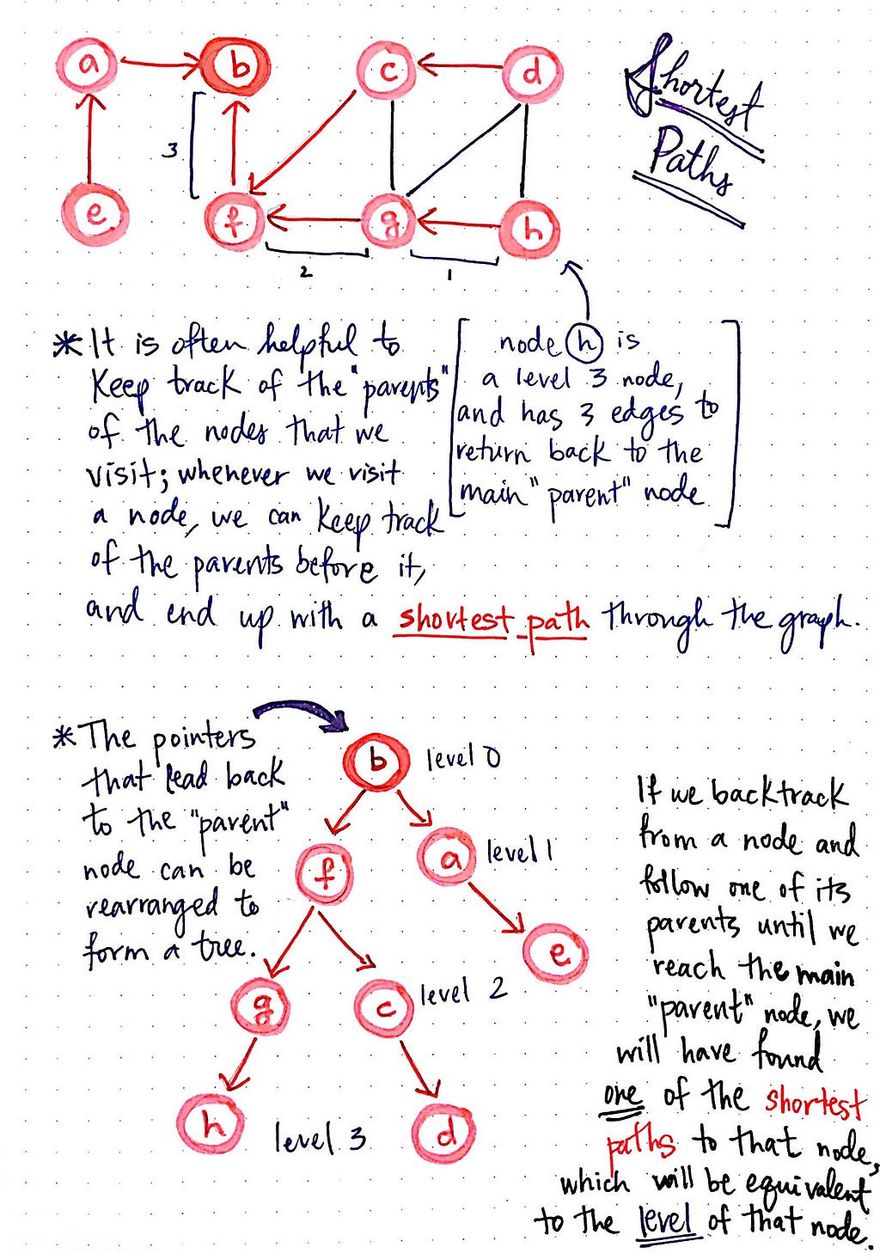 a b c d
Shortest
Paths
3
e f g h
2 1
*It is often helpful to
keep track of the "parents"
of the nodes that we
visit; whenever we visit
a node, we can keep track
of the parents before it,
and end up with a shortest path through the graph.
node h is
a level 3 node,
and has 3 edges to
return back to the
main "parent" node
*The pointers
that lead back
to the "parent"
node can be
rearranged to
form a tree.
b level 0
f a level 1
e
g c level 2
h level 3 d
If we backtrack
from a node and
follow one of its
parents until we
reach the main
"parent" node, we
will have found
one of the shortest
paths to that node,
which will be equivalent
to the level of that node.